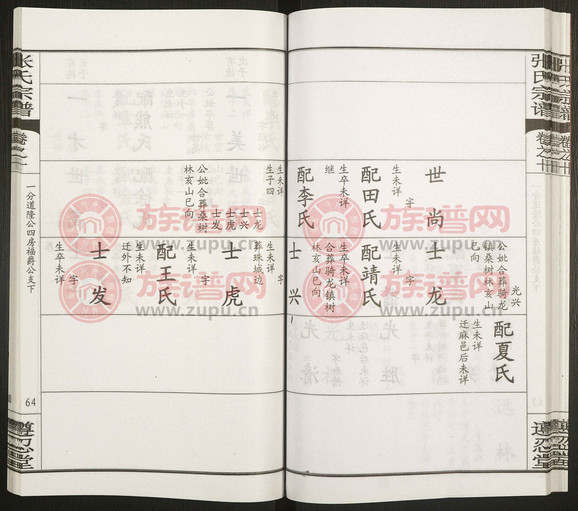 世尚
字
生未详
配田氏
生卒未详
继
配李氏
生未详
生子四
士龙
士兴
士虎
士发
公妣合葬桑树
林亥山巳向
光兴
公妣合葬骑龙
镇桑树林亥山
巳向
士龙
字
生未详
配靖氏
生卒未详
合葬骑龙镇树
林亥山巳向
士兴
字
生未详
葬珠城边
士虎
字
生未详
配王氏
生未详
迁外不知
士发
字
生卒未详
配夏氏
生未详
迁麻邑后未详
张氏宗谱
卷之十
遵忍堂
张氏宗谱
一分道隆公四房福爵公支下
64
遵忍堂
族谱网
www.zupu.cn
族谱网
www.zupu.cn
族谱网
www.zupu.cn
族谱网
www.zupu.cn